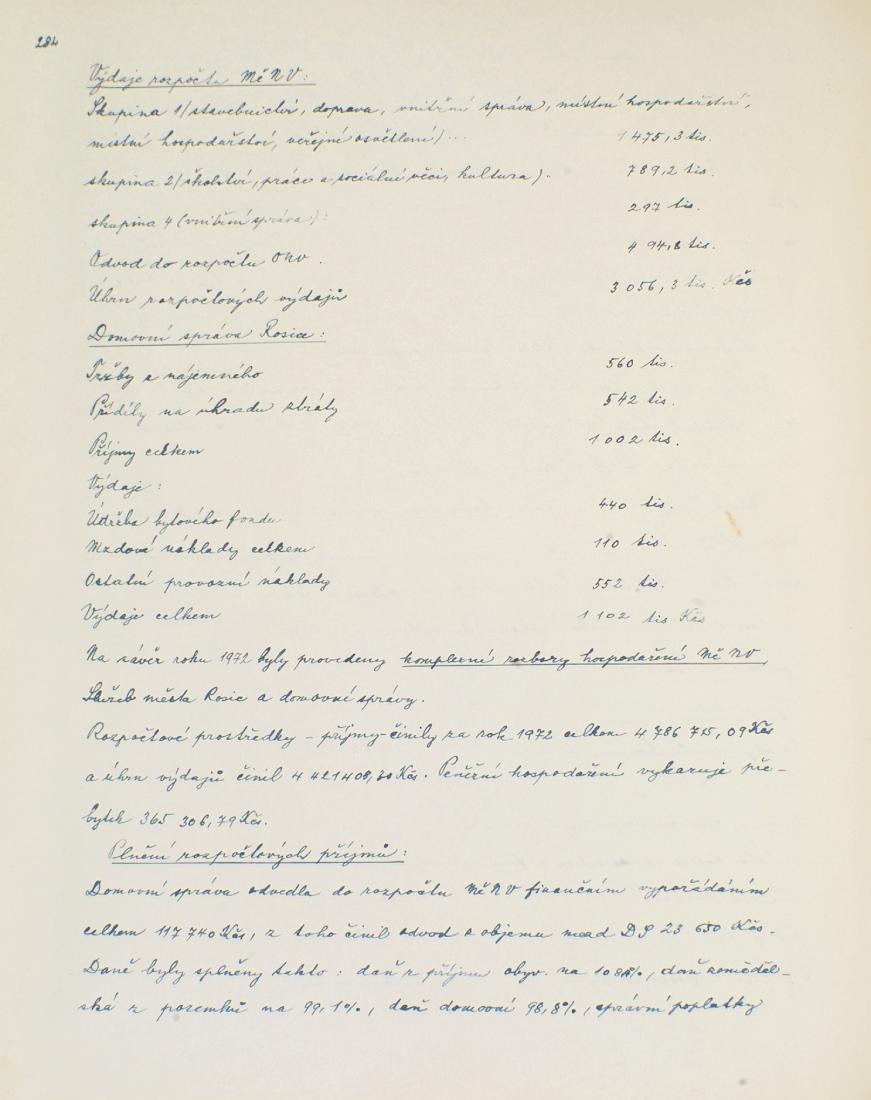 284
Výdaje rozpočtu MěNV:
Skupina 1/stavebnictví, doprava, vnitřní správa, místní hospodářství,
místní hospodářství, veřejné osvětlení)...  1 475,3 tis.
skupina 2/školství, práce a sociální věci, kultura).  789,2 tis.
skupina 4 (vnitřní správa):  297 tis.
Odvod do rozpočtu ONV.  494,8 tis.
Úhrn rozpočtových výdajů  3 056,3 tis. Kčs
Domovní správa Rosice:
Tržby z nájemného  560 tis.
Příděly na úhradu ztráty  542 tis.
Příjmy celkem  1 002 tis.
Výdaje:
Údržba bytového fondu  440 tis.
Mzdové náklady celkem  110 tis.
Ostatní provozní náklady  552 tis.
Výdaje celkem  1 102 tis Kčs
Na závěr roku 1972 byly provedeny komplexní rozbory hospodaření MěNV,
Služeb města Rosic a domovní správy.
Rozpočtové prostředky - příjmy - činily za rok 1972 celkem 4 786 715,09 Kčs
a úhrn výdajů činil 4 421 408,30 Kčs. Peněžní hospodaření vykazuje pře-
bytek 365 306,79 Kčs.
Plnění rozpočtových příjmů:
Domovní správa odvedla do rozpočtu MěNV finančním vypořádáním
celkem 117 740 Kčs, z toho činil odvod z objemu mezd DS 23 650 Kčs.
Daně byly splněny takto: daň z příjmu obyv. na 108%, daň zeměděl-
ská z pozemků na 99,1%, daň domovní 98,8%, správní poplatky